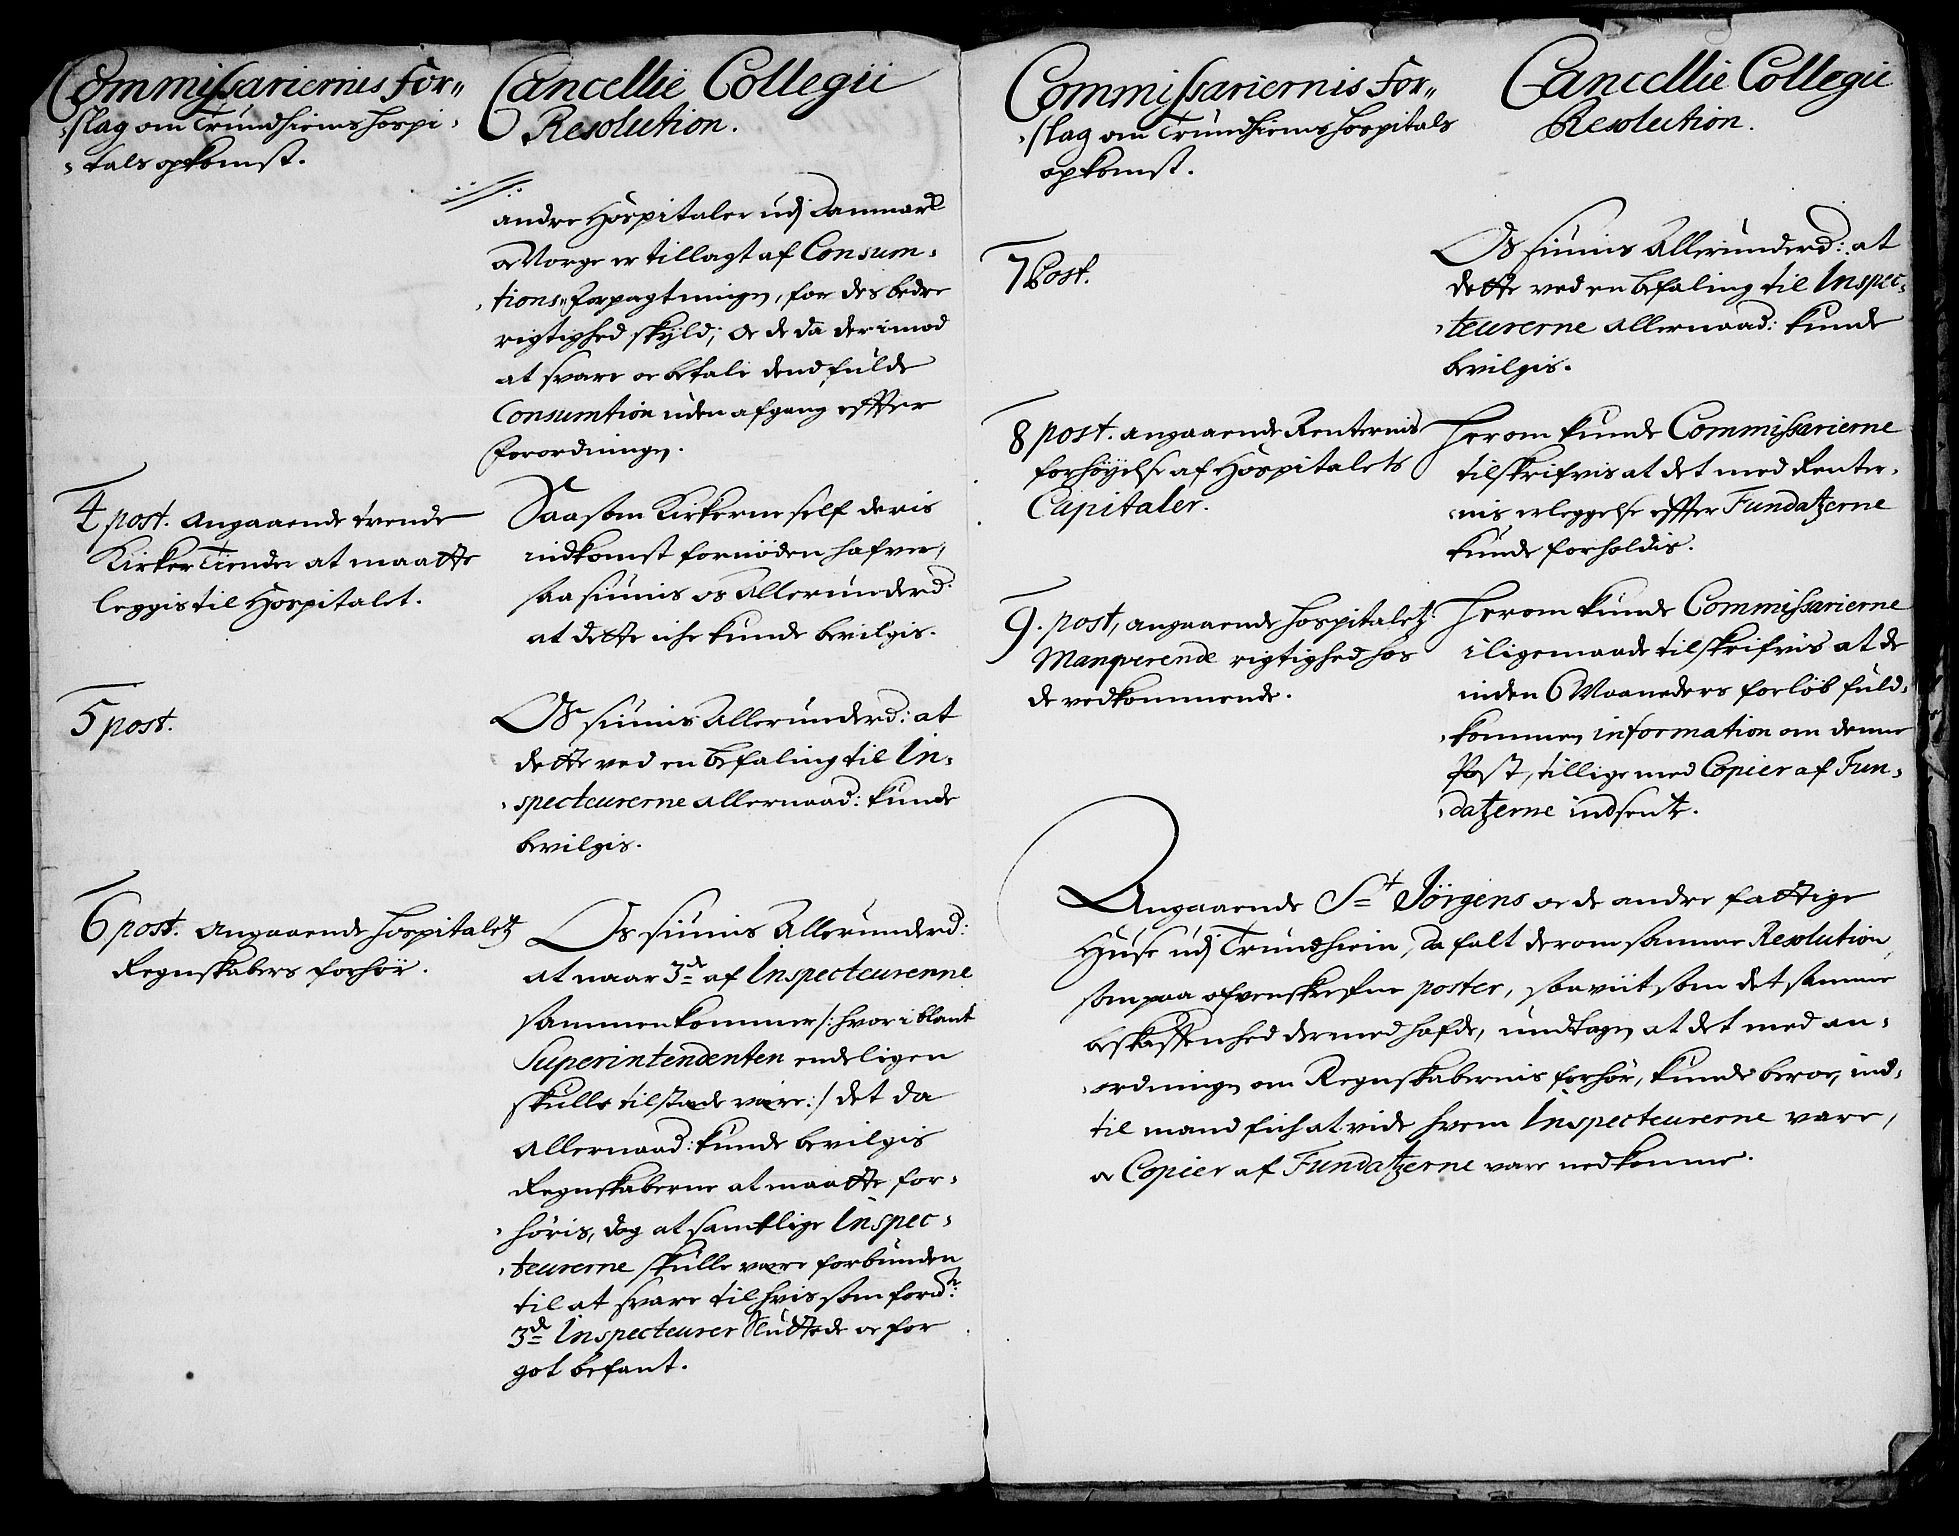 Commissariernis For-
slag om Trundhiems Hospi-
tals opkomst.
Cancellie Collegii
Resolution.
andre Hospitaler udj Danmark
oc Norge er tillagt af Consum-
tions-Forpagtningen, for des bedre
rigtighed skyld; oc de da derimod
at svare oc betale dend fulde
Consumtion uden afgang effter
Forordningen.
4 post. Angaaende trende
Kirker Tiender at maatte
leggis til Hospitalet.
Saasom Kirkerne self deris
indkomst fornöden hafver,
saa siunis os Allerunderd:
at dette iche kunde bevilgis.
5 post.
Os siunis Allerunderd: at
dette ved en befaling til In-
specteurerne allernaad: kunde
bevilgis.
6 post. Angaaende Hospitaletz
Regnskabers forhör.
Os siunis Allerunderd:
at naar 3de af Inspecteurerne
sammenkommer /: hvor i blant
Superintendenten endeligen
skulle tilstæde være :/ det da
Allernaad: kunde bevilgis
Regnskaberne at maatte for-
höris, dog at samtlige Inspec-
teurerne skulle være forbunden
til at svare til hvis som ford:ne
3de Inspecteurer Sluttede oc for
got befant.
Commissariernis For-
slag om Trundhiems Hospitals
opkomst.
Cancellie Collegii
Resolution.
7 Post.
Os siunis Allerunderd: at
dette ved en befaling til Inspec-
teurerne allernaad: kunde
bevilgis.
8 post. angaaende Renternis
forhöyelse af Hospitalets
Capitaler.
Herom kunde Commissarierne
tilskrifvis at det med Renter-
nis erleggelse effter Fundatzerne
kunde forholdis.
9. post, angaaende Hospitaletz
Manqverende rigtighed hos
de vedkommende.
Herom kunde Commissarierne
iligemaade tilskrifvis at de
inden 6 Maaneders forlöb fuld-
kommen information om denne
Post, tillige med Copier af Fun-
datzerne indsente.
Angaaende St Jörgens oc de andre fattige
Huse udj Trundhiem, da falt derom samme Resolution,
som paa ofvenskrefne poster, saaviit som det samme
beskaffenhed dermed hafde, undtagen at det med an-
ordningen om Regnskabernis forhör, kunde beroe, ind-
til mand fich at vide hvem Inspecteurerne vare,
oc Copier af Fundatzerne vare nedkomne.